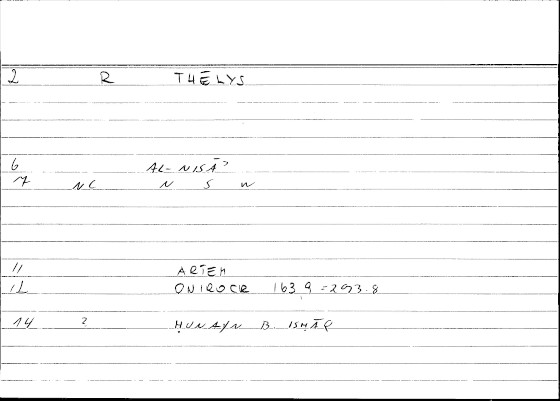 2 R THĒLYS
6 AL-NISĀʾ
7 NC N S W
11 ARTEM
12 ONIROCR 163.9 = 293.8
14 2 ḤUNAYN B. ISḤĀQ